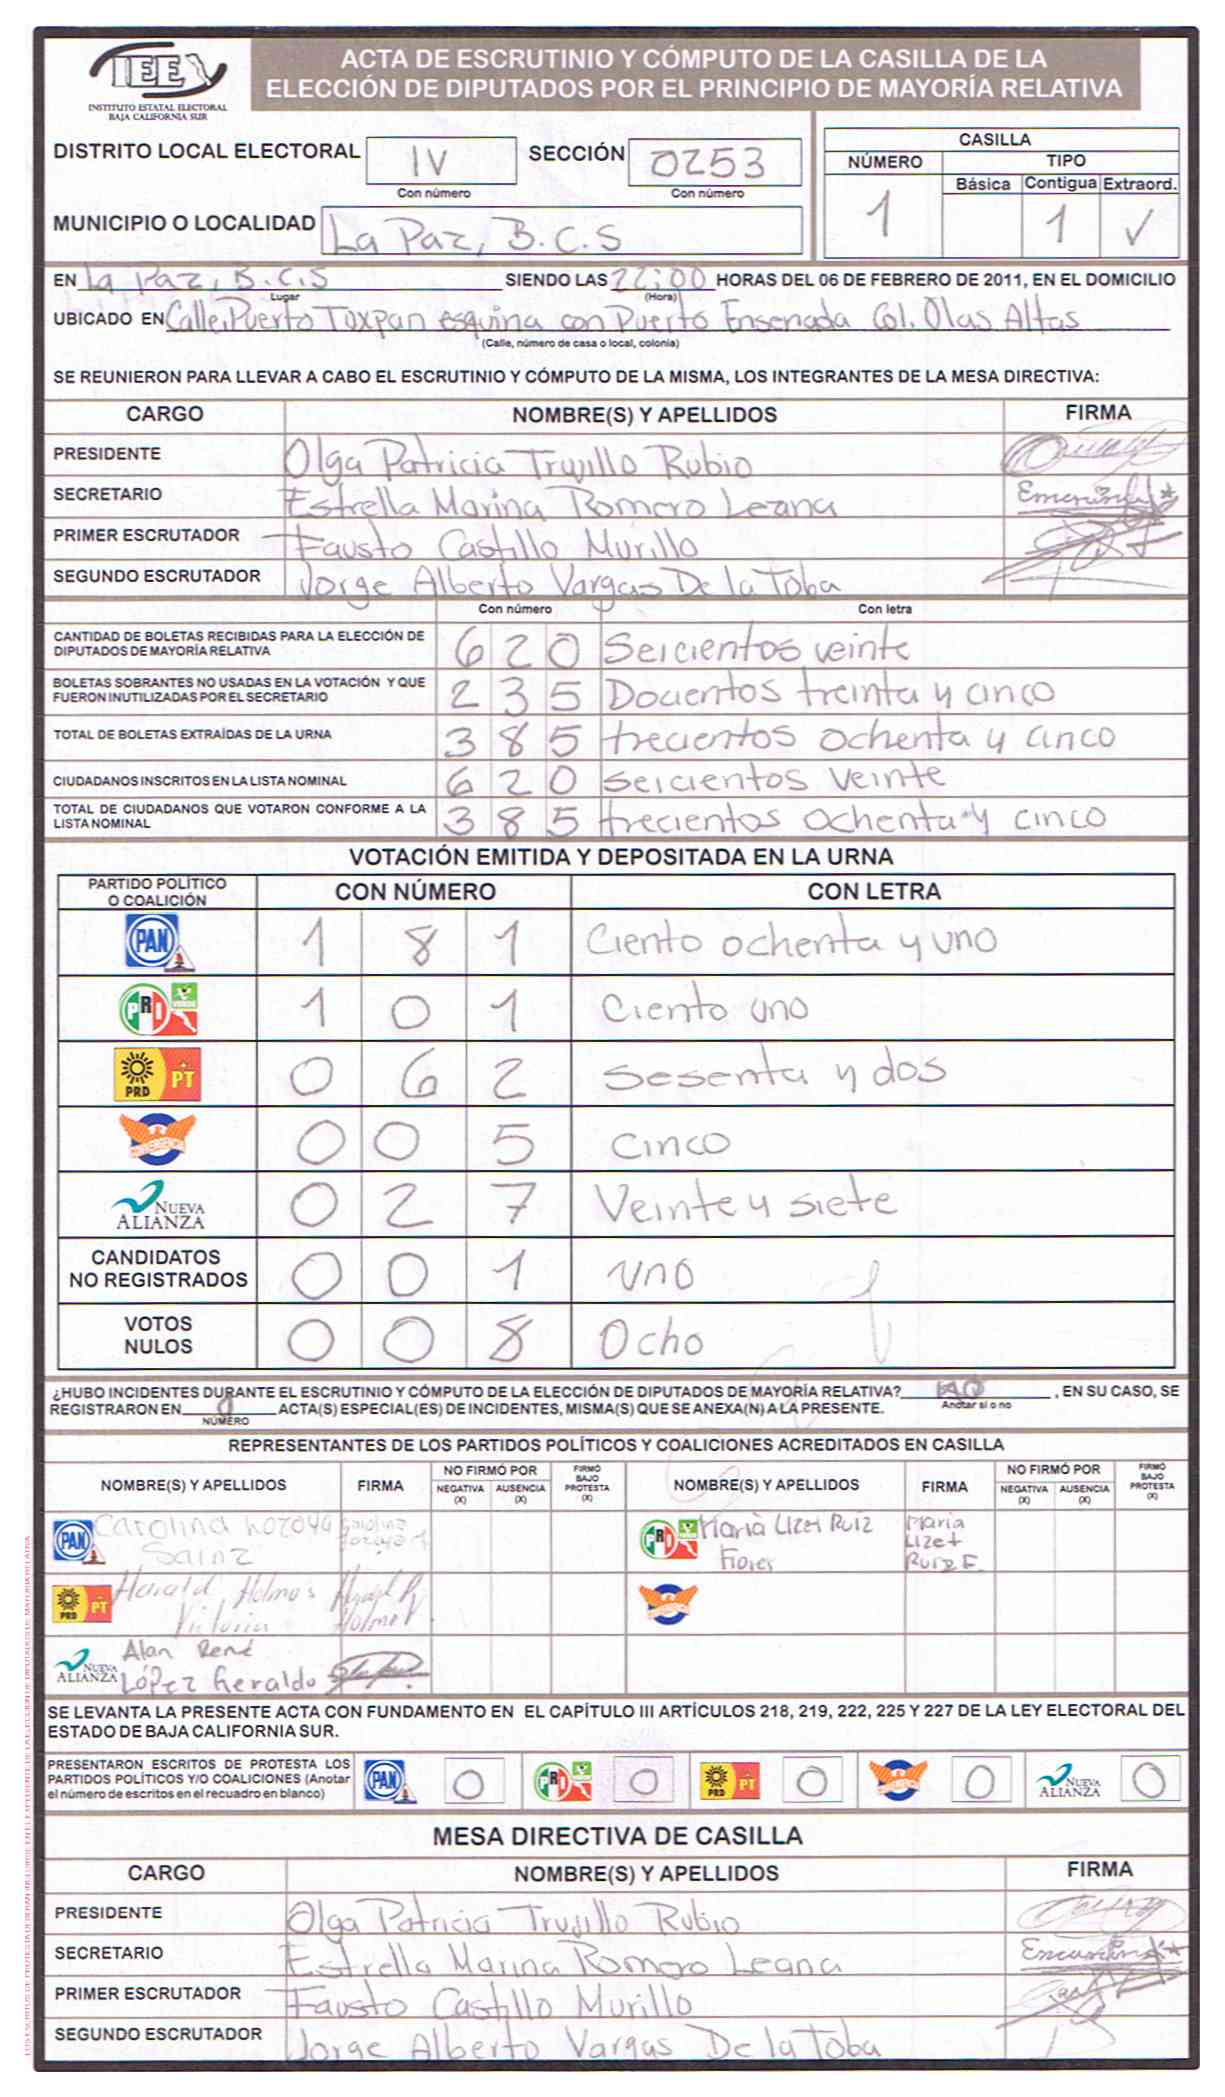 IEE
INSTITUTO ESTATAL ELECTORAL
BAJA CALIFORNIA SUR
ACTA DE ESCRUTINIO Y CÓMPUTO DE LA CASILLA DE LA
ELECCIÓN DE DIPUTADOS POR EL PRINCIPIO DE MAYORÍA RELATIVA
DISTRITO LOCAL ELECTORAL IV SECCIÓN 0253
Con número Con número
CASILLA
NÚMERO TIPO
Básica Contigua Extraord.
1 1 ✓
MUNICIPIO O LOCALIDAD La Paz, B.C.S
EN La Paz, B.C.S SIENDO LAS 22:00 HORAS DEL 06 DE FEBRERO DE 2011, EN EL DOMICILIO
Lugar (Hora)
UBICADO EN Calle, Puerto Tuxpan esquina con Puerto Ensenada Col. Olas Altas
(Calle, número de casa o local, colonia)
SE REUNIERON PARA LLEVAR A CABO EL ESCRUTINIO Y CÓMPUTO DE LA MISMA, LOS INTEGRANTES DE LA MESA DIRECTIVA:
CARGO NOMBRE(S) Y APELLIDOS FIRMA
PRESIDENTE Olga Patricia Trujillo Rubio
SECRETARIO Estrella Marina Romero Leana
PRIMER ESCRUTADOR Fausto Castillo Murillo
SEGUNDO ESCRUTADOR Jorge Alberto Vargas De la Toba
Con número Con letra
CANTIDAD DE BOLETAS RECIBIDAS PARA LA ELECCIÓN DE
DIPUTADOS DE MAYORÍA RELATIVA 6 2 0 Seicientos veinte
BOLETAS SOBRANTES NO USADAS EN LA VOTACIÓN Y QUE
FUERON INUTILIZADAS POR EL SECRETARIO 2 3 5 Docientos treinta y cinco
TOTAL DE BOLETAS EXTRAÍDAS DE LA URNA 3 8 5 trecientos ochenta y cinco
CIUDADANOS INSCRITOS EN LA LISTA NOMINAL 6 2 0 seicientos veinte
TOTAL DE CIUDADANOS QUE VOTARON CONFORME A LA
LISTA NOMINAL 3 8 5 trecientos ochenta y cinco
VOTACIÓN EMITIDA Y DEPOSITADA EN LA URNA
PARTIDO POLÍTICO
O COALICIÓN CON NÚMERO CON LETRA
PAN 1 8 1 Ciento ochenta y uno
PRI VERDE 1 0 1 Ciento uno
PRD PT 0 6 2 Sesenta y dos
CONVERGENCIA 0 0 5 cinco
NUEVA ALIANZA 0 2 7 Veinte y siete
CANDIDATOS
NO REGISTRADOS 0 0 1 uno
VOTOS
NULOS 0 0 8 Ocho
¿HUBO INCIDENTES DURANTE EL ESCRUTINIO Y CÓMPUTO DE LA ELECCIÓN DE DIPUTADOS DE MAYORÍA RELATIVA? no , EN SU CASO, SE
Anotar si o no
REGISTRARON EN 0 ACTA(S) ESPECIAL(ES) DE INCIDENTES, MISMA(S) QUE SE ANEXA(N) A LA PRESENTE.
NÚMERO
REPRESENTANTES DE LOS PARTIDOS POLÍTICOS Y COALICIONES ACREDITADOS EN CASILLA
NOMBRE(S) Y APELLIDOS FIRMA NO FIRMÓ POR NEGATIVA (X) AUSENCIA (X) FIRMÓ BAJO PROTESTA (X) NOMBRE(S) Y APELLIDOS FIRMA NO FIRMÓ POR NEGATIVA (X) AUSENCIA (X) FIRMÓ BAJO PROTESTA (X)
PAN Carolina Lozoya Sainz Carolina Lozoya
PRI VERDE Maria Lizet Ruiz Flores Maria Lizet Ruiz F.
PRD PT Harald Holmos Victoria
NUEVA ALIANZA Alan René López Geraldo
SE LEVANTA LA PRESENTE ACTA CON FUNDAMENTO EN EL CAPÍTULO III ARTÍCULOS 218, 219, 222, 225 Y 227 DE LA LEY ELECTORAL DEL
ESTADO DE BAJA CALIFORNIA SUR.
PRESENTARON ESCRITOS DE PROTESTA LOS
PARTIDOS POLÍTICOS Y/O COALICIONES (Anotar
el número de escritos en el recuadro en blanco)
PAN 0 PRI VERDE 0 PRD PT 0 CONVERGENCIA 0 NUEVA ALIANZA 0
MESA DIRECTIVA DE CASILLA
CARGO NOMBRE(S) Y APELLIDOS FIRMA
PRESIDENTE Olga Patricia Trujillo Rubio
SECRETARIO Estrella Marina Romero Leana
PRIMER ESCRUTADOR Fausto Castillo Murillo
SEGUNDO ESCRUTADOR Jorge Alberto Vargas De la Toba